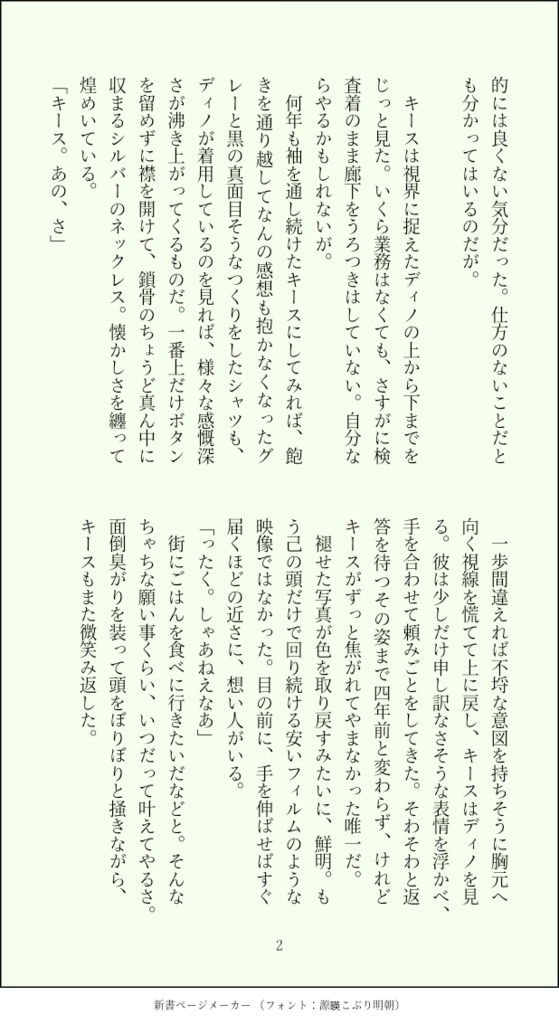 的には良くない気分だった。仕方のないことだと
も分かってはいるのだが。
キースは視界に捉えたディノの上から下までを
じっと見た。いくら業務はなくても、さすがに検
査着のまま廊下をうろつきはしていない。自分な
らやるかもしれないが。
何年も袖を通し続けたキースにしてみれば、飽
きを通り越してなんの感想も抱かなくなったグ
レーと黒の真面目そうなつくりをしたシャツも、
ディノが着用しているのを見れば、様々な感慨深
さが沸き上がってくるものだ。一番上だけボタン
を留めずに襟を開けて、鎖骨のちょうど真ん中に
収まるシルバーのネックレス。懐かしさを纏って
煌めいている。
「キース。あの、さ」
一歩間違えれば不埒な意図を持ちそうに胸元へ
向く視線を慌てて上に戻し、キースはディノを見
る。彼は少しだけ申し訳なさそうな表情を浮かべ、
手を合わせて頼みごとをしてきた。そわそわと返
答を待つその姿まで四年前と変わらず、けれど
キースがずっと焦がれてやまなかった唯一だ。
褪せた写真が色を取り戻すみたいに、鮮明。も
う己の頭だけで回り続ける安いフィルムのような
映像ではなかった。目の前に、手を伸ばせばすぐ
届くほどの近さに、想い人がいる。
「ったく。しゃあねえなあ」
街にごはんを食べに行きたいだなどと。そんな
ちゃちな願い事くらい、いつだって叶えてやるさ。
面倒臭がりを装って頭をぼりぼりと掻きながら、
キースもまた微笑み返した。
2
新書ページメーカー（フォント：源暎こぶり明朝）